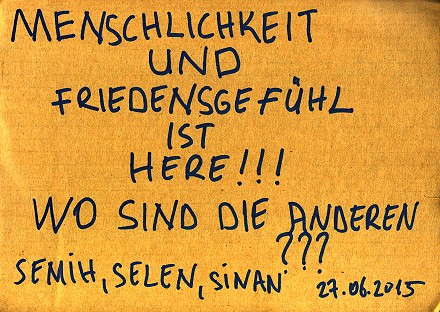 MENSCHLICHKEIT
UND
FRIEDENSGEFÜHL
IST
HERE!!!
WO SIND DIE ANDEREN
???
SEMIH, SELEN, SiNAN 27.06.2015